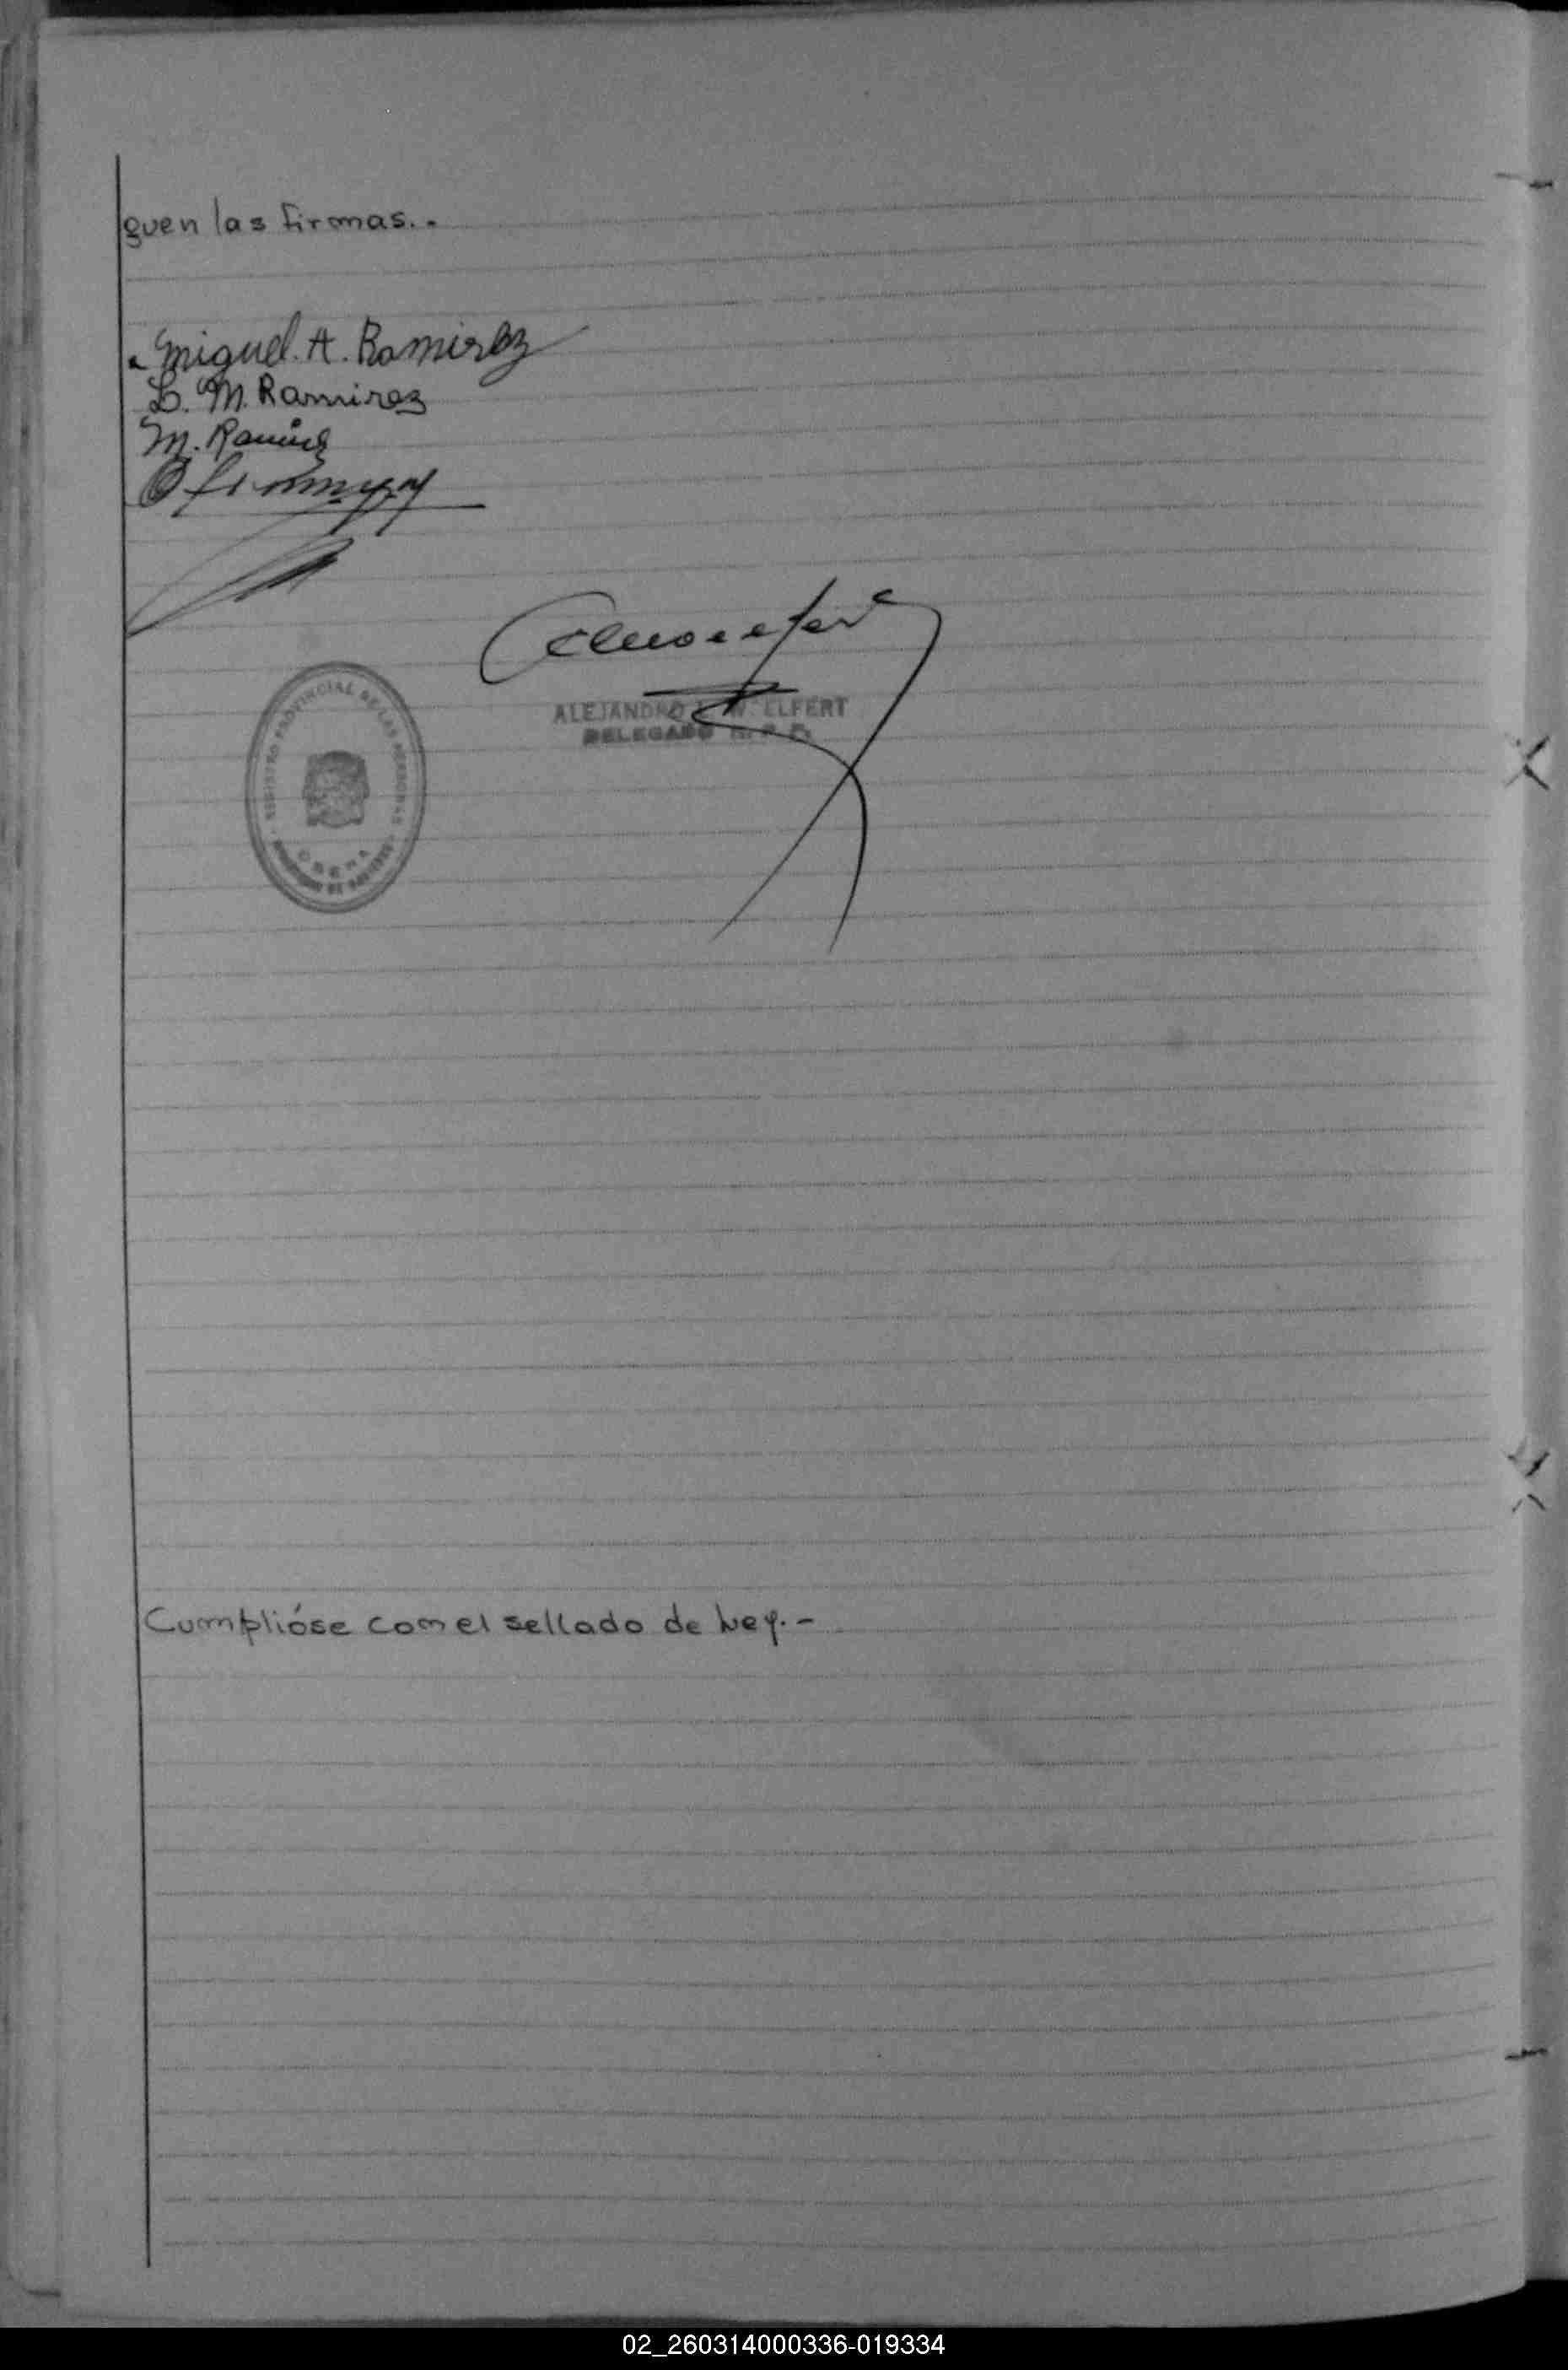 guen las firmas..
Miguel. A. Ramirez
L. M. Ramirez
M. Ramirez
REGISTRO PROVINCIAL DE LAS PERSONAS
OBERA
ALEJANDRO W. ELFERT
DELEGADO R. P. P.
Cumplióse con el sellado de Ley.-
02_260314000336-019334